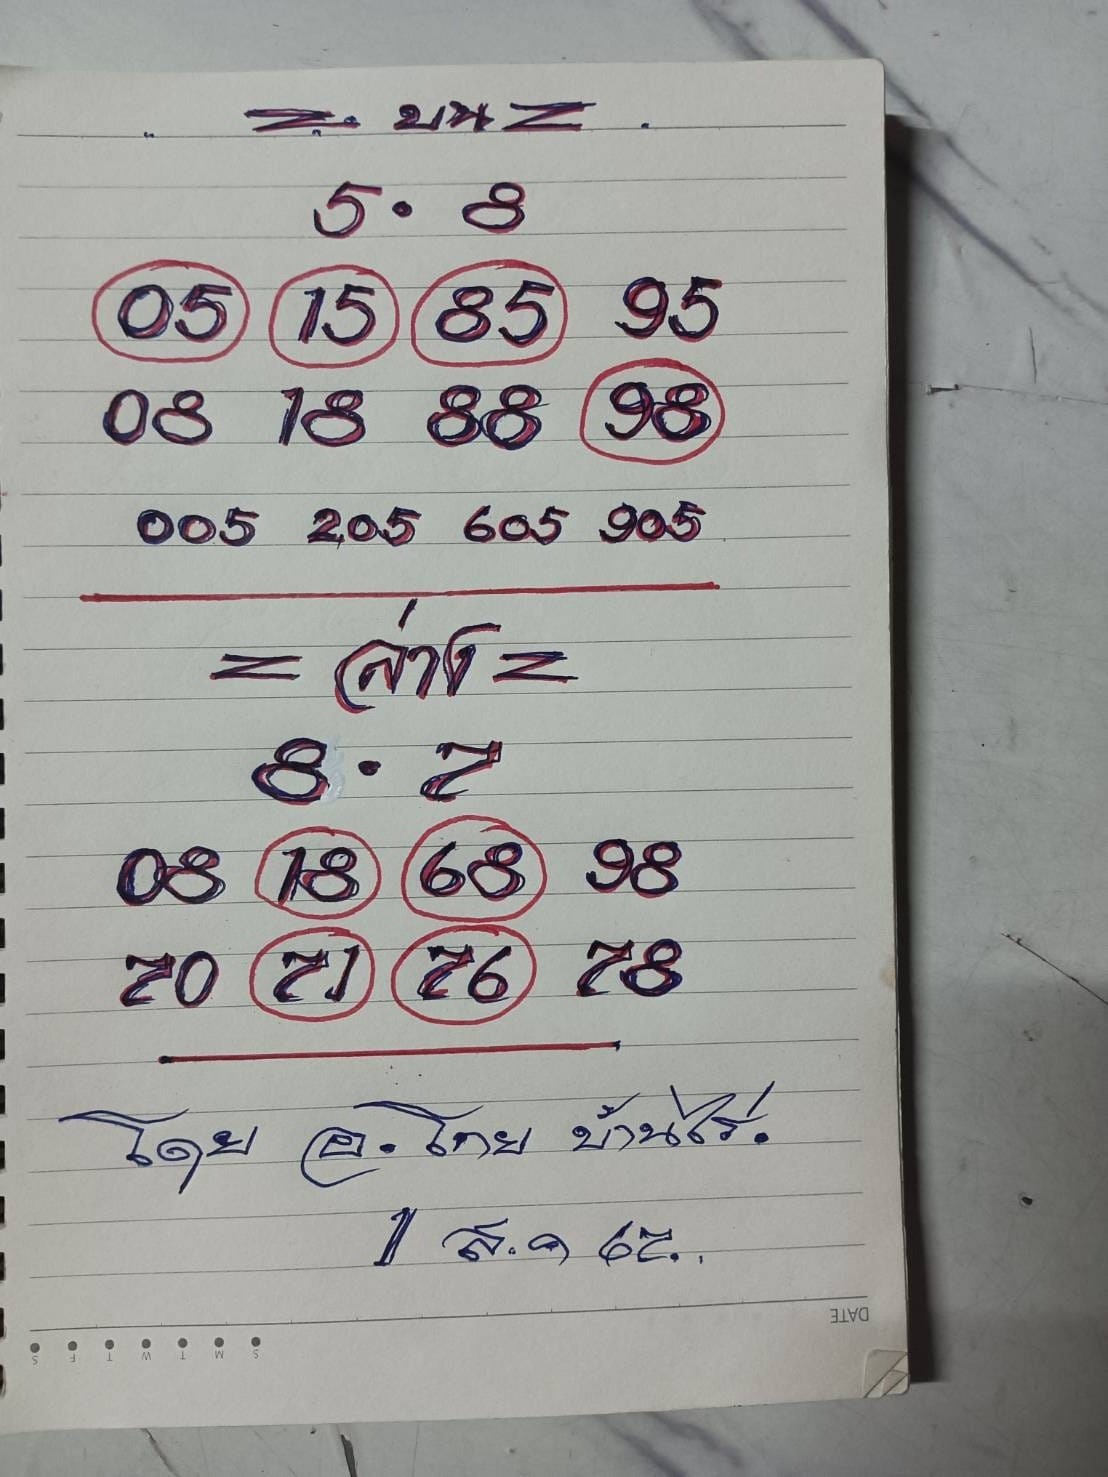 = บน =
5 · 8
05 15 85 95
08 18 88 98
005 205 605 905
= ล่าง =
8 · 7
08 18 68 98
70 71 76 78
โดย อ. โทย บ้านไร่.
1 ส.ค 67..
DATE
S M T W T F S